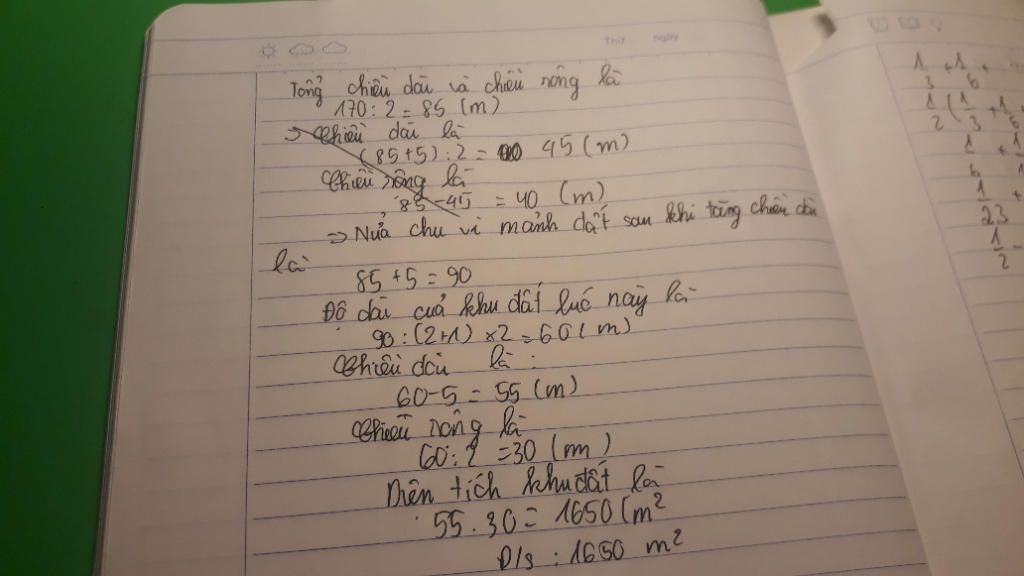 Thứ ngày
Tổng chiều dài và chiều rộng là
170 : 2 = 85 (m)
=> Chiều dài là
(85+5) : 2 = 45 (m)
Chiều rộng là
85-45 = 40 (m)
=> Nửa chu vi mảnh đất sau khi tăng chiều dài
là
85 + 5 = 90
Độ dài cuả khu đất luć này là
90 : (2+1) x2 = 60 (m)
Chiều dài là :
60-5 = 55 (m)
Chiều rộng là
60 : 2 = 30 (m)
Diện tích khu đất là
55 . 30 = 1650 (m²
Đ/s : 1650 m²
1/3 + 1/6 +
1/2 (1/3 + 1/5
1/6 + 1
1/23 +
1/2 -